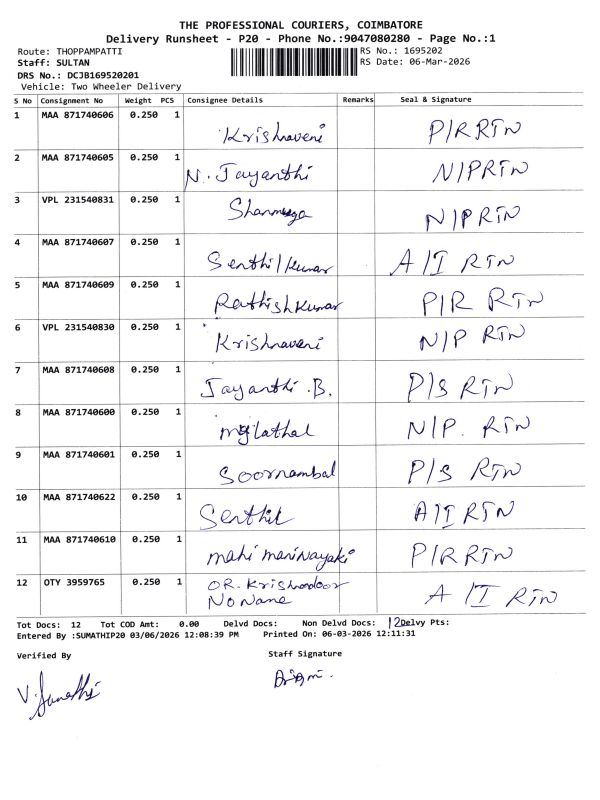 THE PROFESSIONAL COURIERS, COIMBATORE
Delivery Runsheet - P20 - Phone No.:9047080280 - Page No.:1
Route: THOPPAMPATTI RS No.: 1695202
Staff: SULTAN RS Date: 06-Mar-2026
DRS No.: DCJB169520201
Vehicle: Two Wheeler Delivery
S No Consignment No Weight PCS Consignee Details Remarks Seal & Signature
1 MAA 871740606 0.250 1 Krishnaveni P/R RTN
2 MAA 871740605 0.250 1 N. Jayanthi N/P RTN
3 VPL 231540831 0.250 1 Shanmuga N/P RTN
4 MAA 871740607 0.250 1 Senthilkumar A/I RTN
5 MAA 871740609 0.250 1 Rathishkumar P/R RTN
6 VPL 231540830 0.250 1 Krishnaveni N/P RTN
7 MAA 871740608 0.250 1 Jayanthi .B. P/S RTN
8 MAA 871740600 0.250 1 mylathal N/P. RTN
9 MAA 871740601 0.250 1 Soornambal P/S RTN
10 MAA 871740622 0.250 1 Senthil A/I RTN
11 MAA 871740610 0.250 1 mahi manivayaki P/R RTN
12 OTY 3959765 0.250 1 OR. Krishnadoor A/I RTN
No Name
Tot Docs: 12 Tot COD Amt: 0.00 Delvd Docs: Non Delvd Docs: 12 Delvy Pts:
Entered By :SUMATHIP20 03/06/2026 12:08:39 PM Printed On: 06-03-2026 12:11:31
Verified By Staff Signature